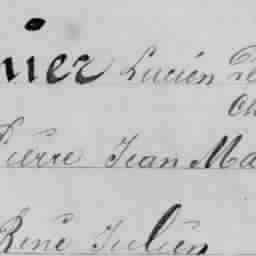 nier Lucien
Pierre Jean Ma
René Julien